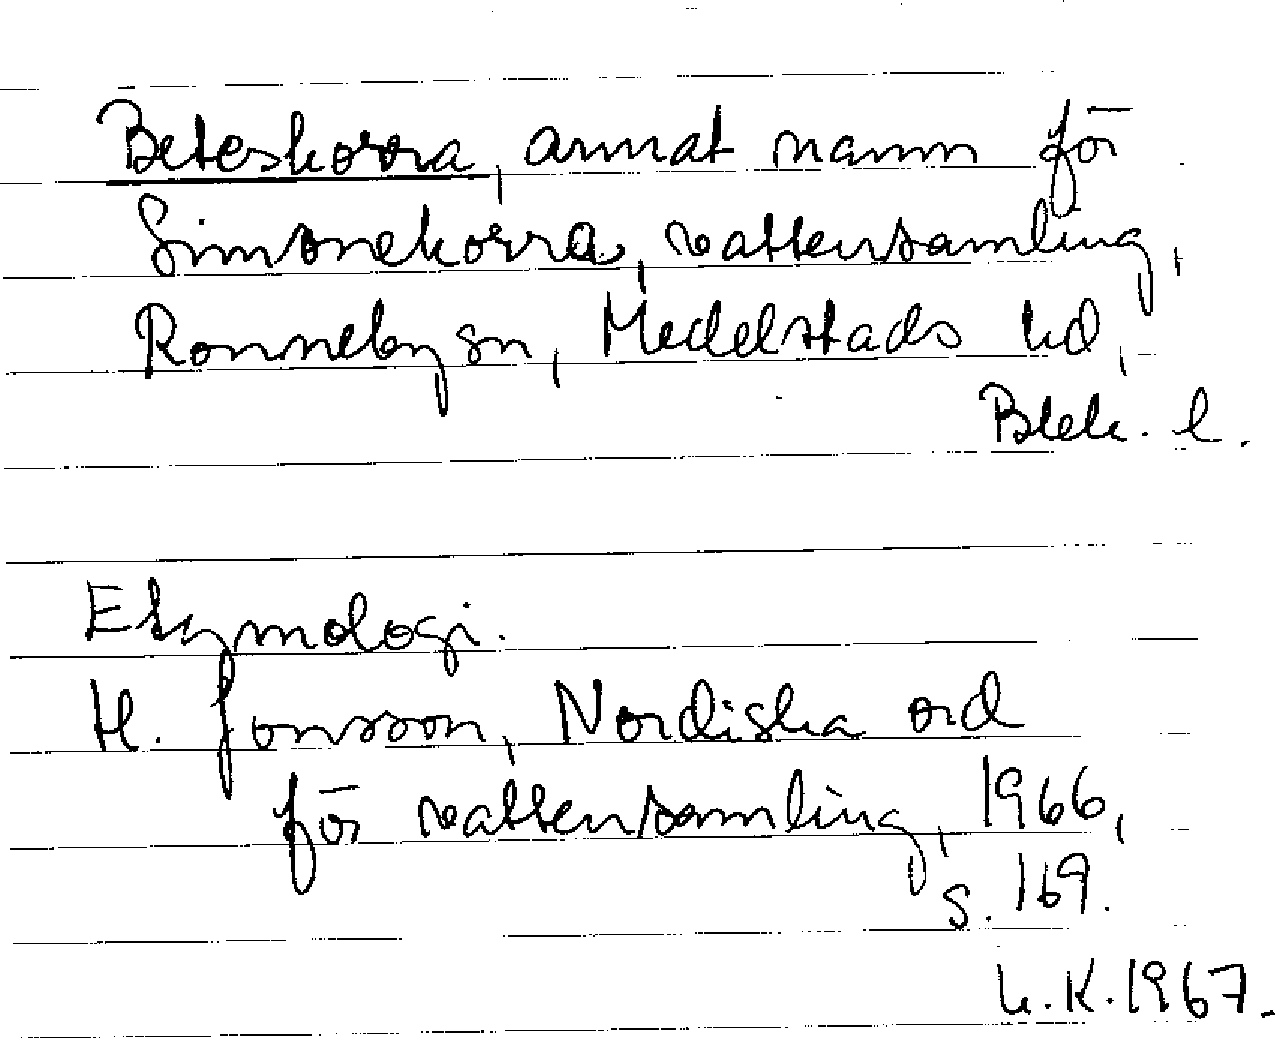 Beteskorra, annat namn för
Simonekorra, vattensamling,
Ronneby sn, Medelstads hd,
Blek. l.
Etymologi.
H. Jonsson, Nordiska ord
för vattensamling, 1966,
s. 169.
L. K. 1967.